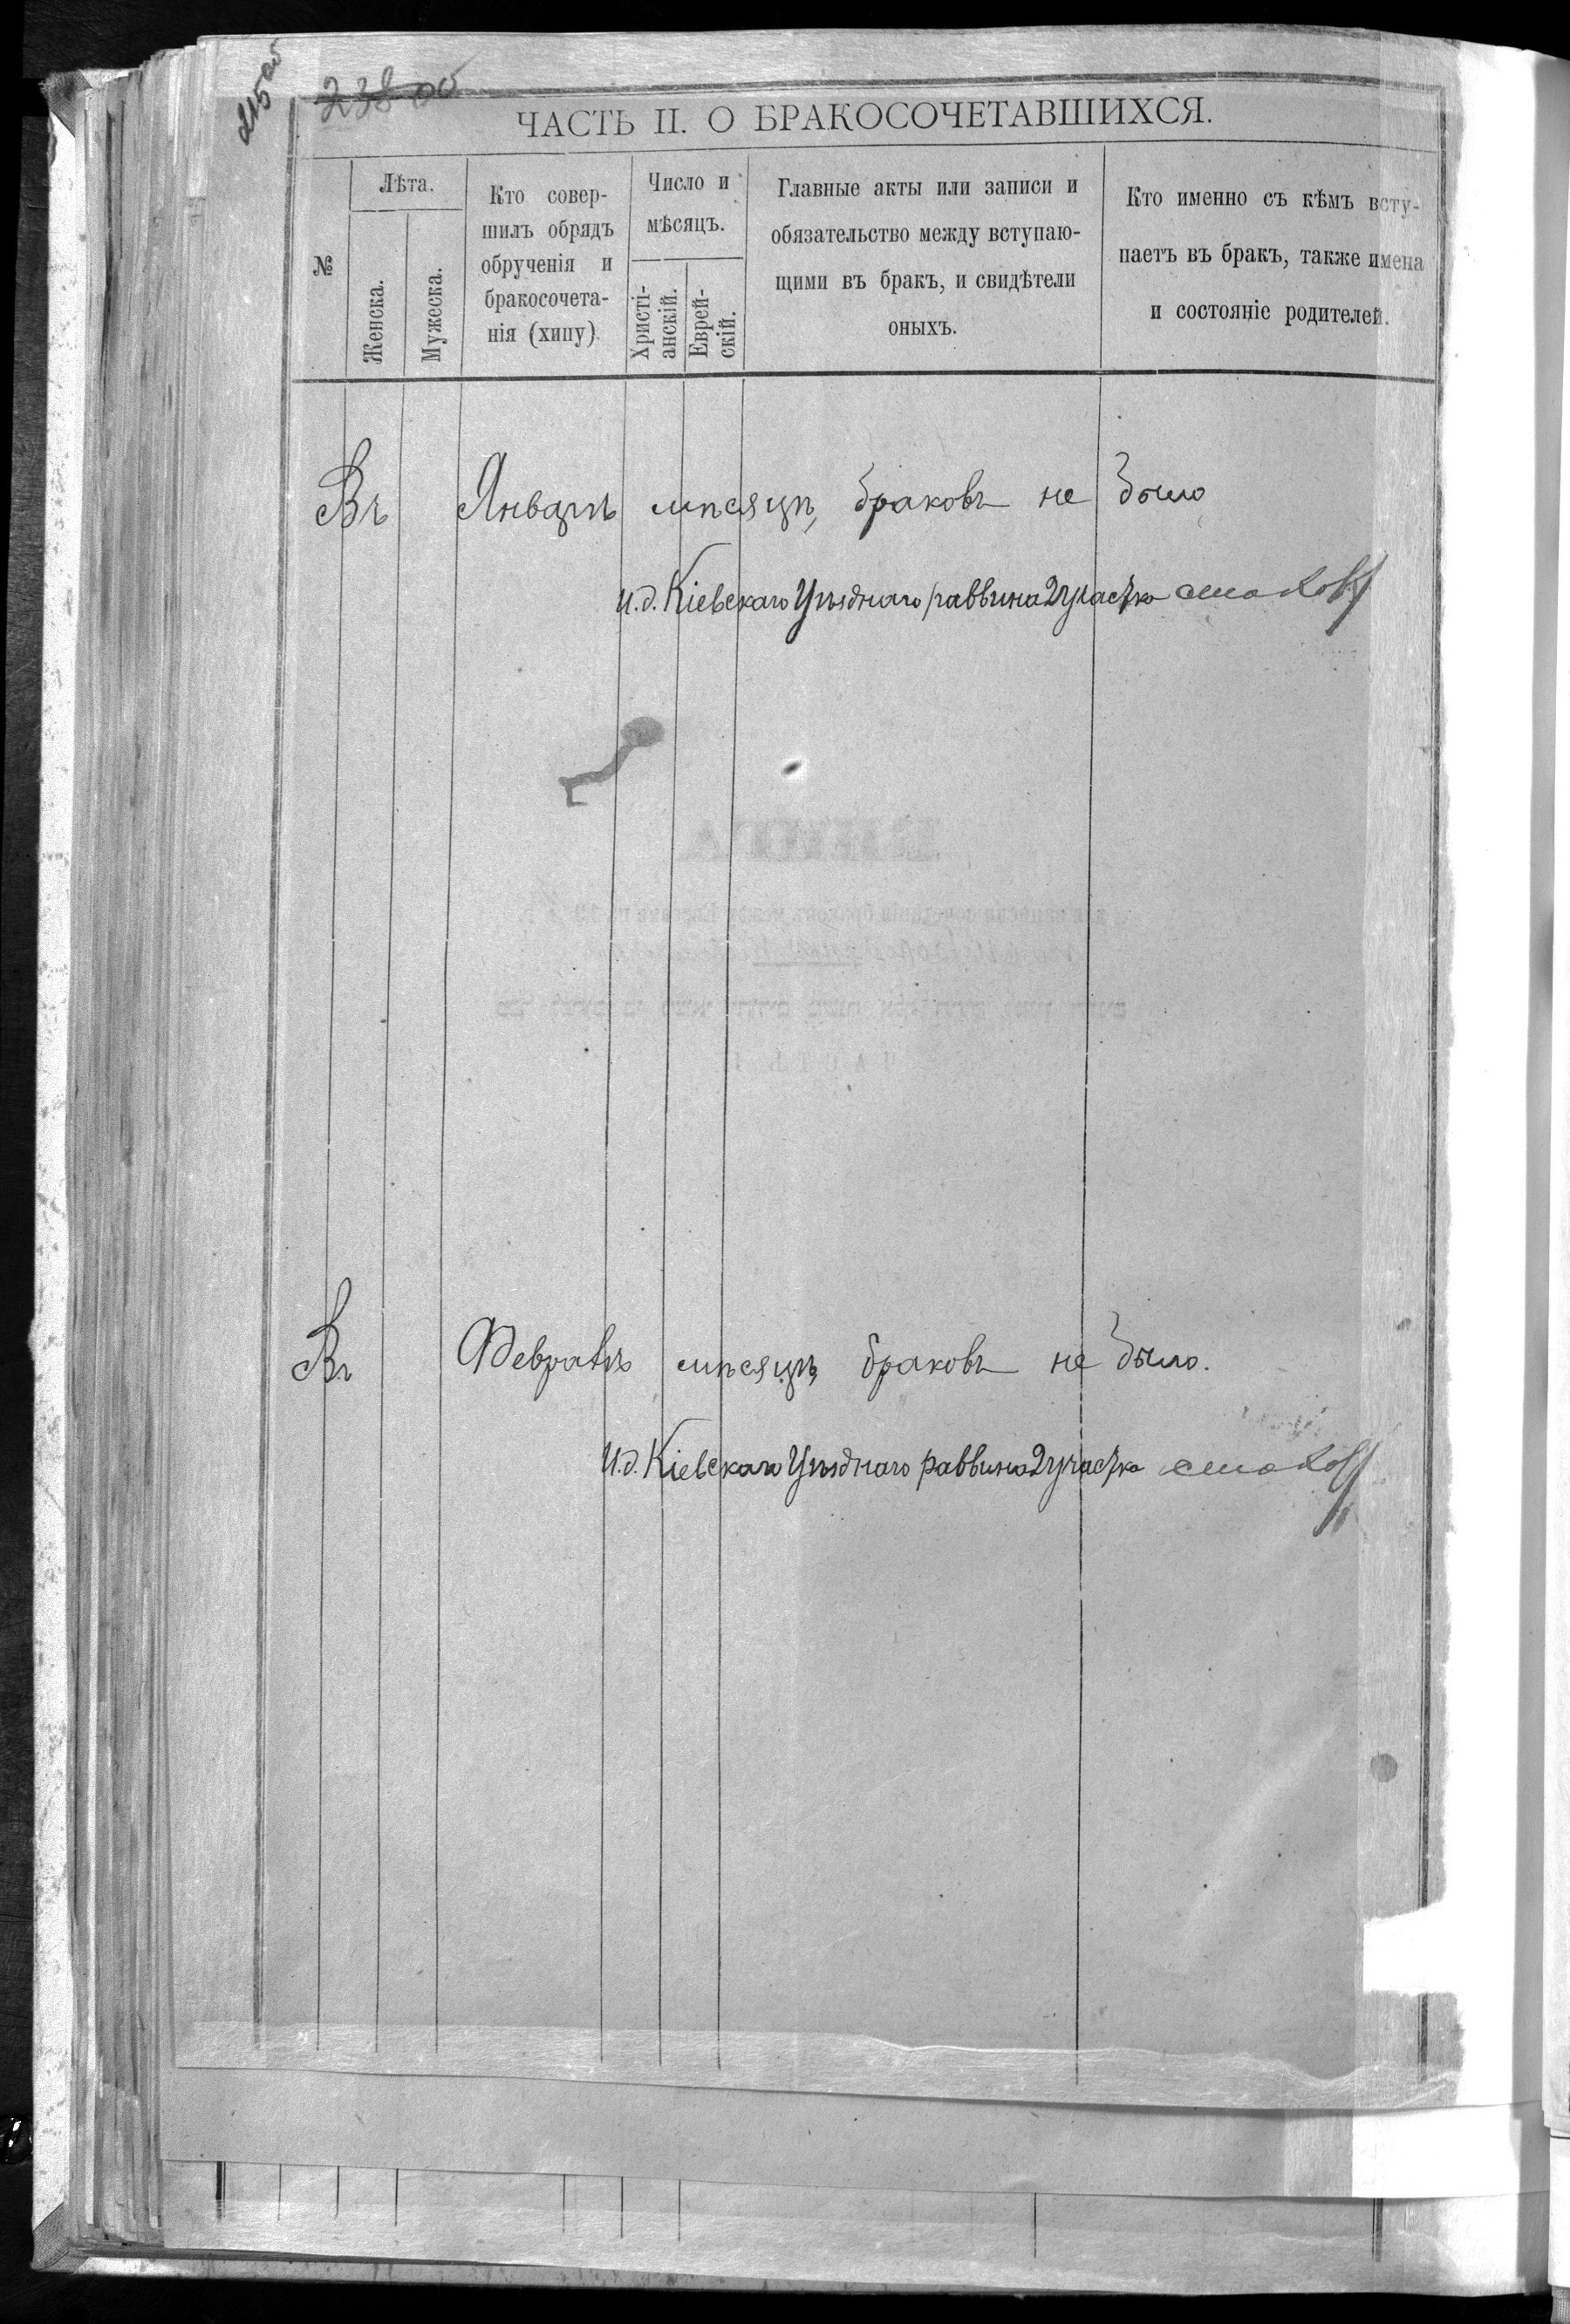 215 об
238 об
ЧАСТЬ II. О БРАКОСОЧЕТАВШИХСЯ.
№
Лѣта.
Женска.
Мужеска.
Кто совер-
шилъ обрядъ
обрученія и
бракосочета-
нія (хипу).
Число и
мѣсяцъ.
Христі-
анскій.
Еврей-
скій.
Главные акты или записи и
обязательство между вступаю-
щими въ бракъ, и свидѣтели
оныхъ.
Кто именно съ кѣмъ всту-
паетъ въ бракъ, также имена
и состояніе родителей.
Въ Январѣ мѣсяцѣ браковъ не было
И.д. Кіевскаго Уѣзднаго раввина 2 участка
Въ Февралѣ мѣсяцѣ браковъ не было.
И.д. Кіевскаго Уѣзднаго раввина 2 участка